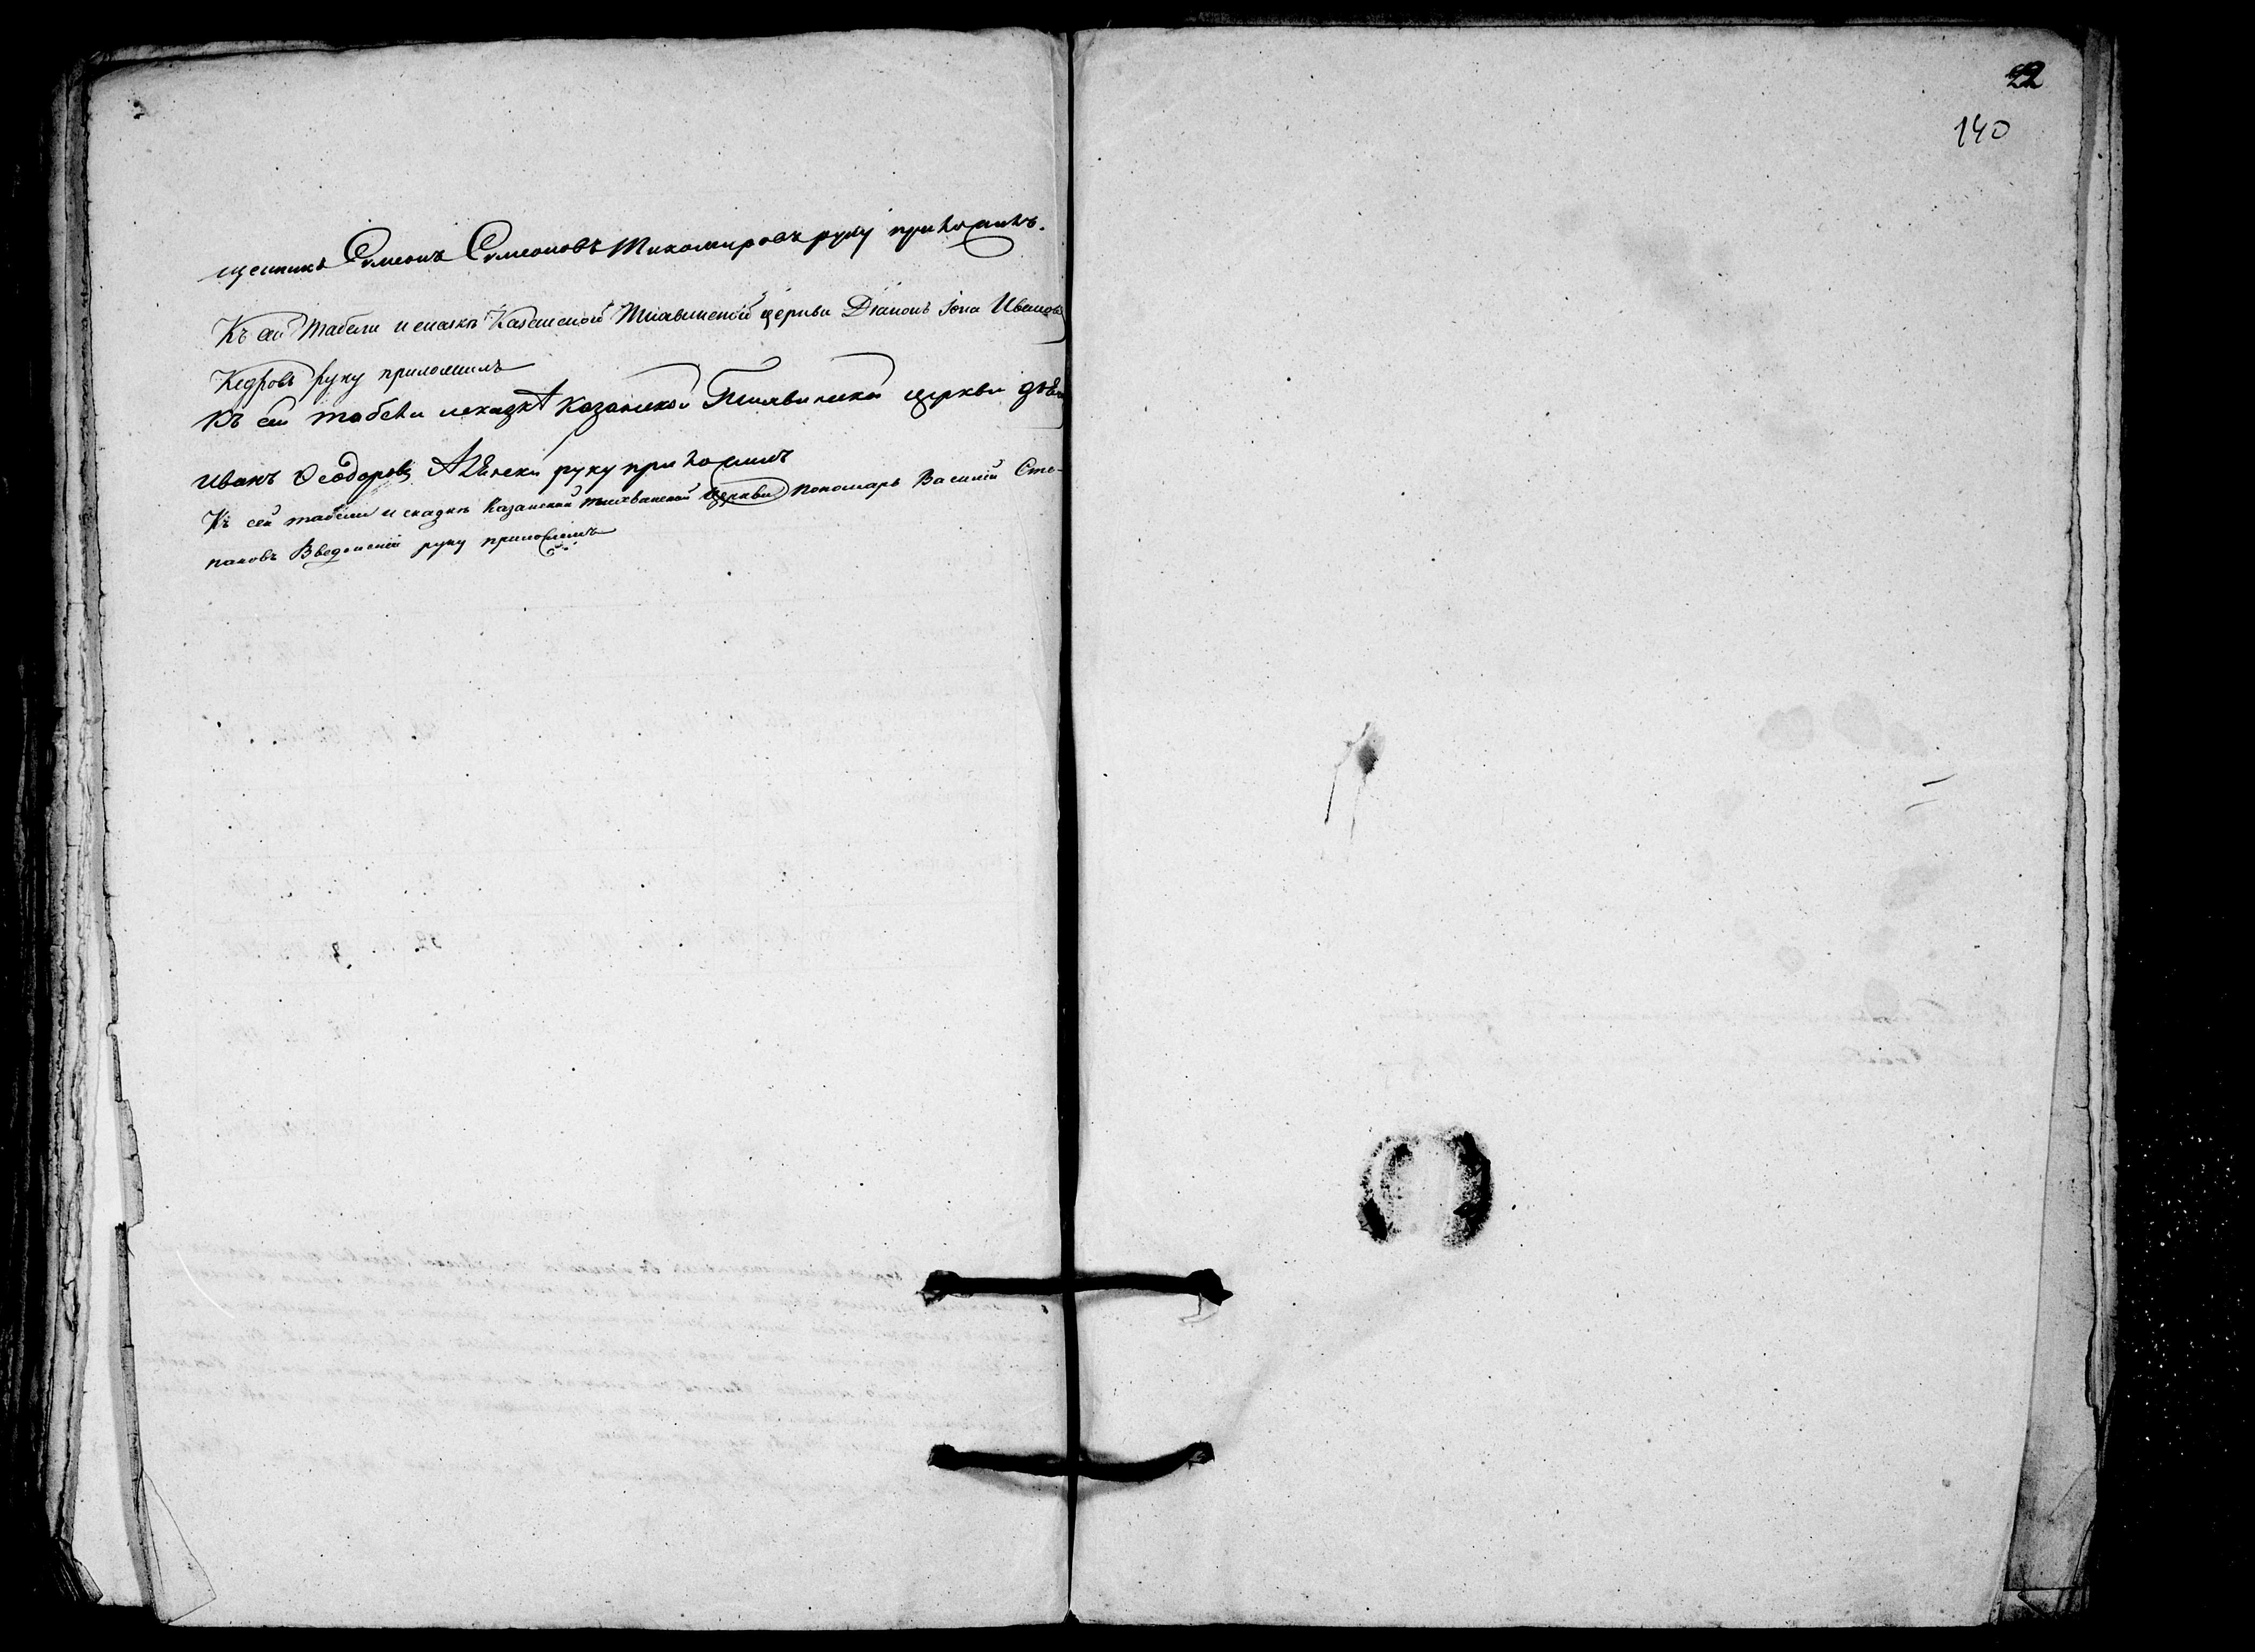 щенникъ Сѵмеонъ Сѵмеоновъ Тихомировъ руку приложилъ.
Къ сей табели и сказкѣ Казанской Тихвинской церкви Діаконъ Іона Ивановъ
Кедровъ руку приложилъ
Къ сей табели и сказкѣ Казанской Тихвинской церкви
Иванъ Ѳеодоровъ руку приложилъ
Къ сей табели и сказкѣ Казанской Тихвинской церкви пономарь Василій Сте-
пановъ Введенскій руку приложилъ
22
140